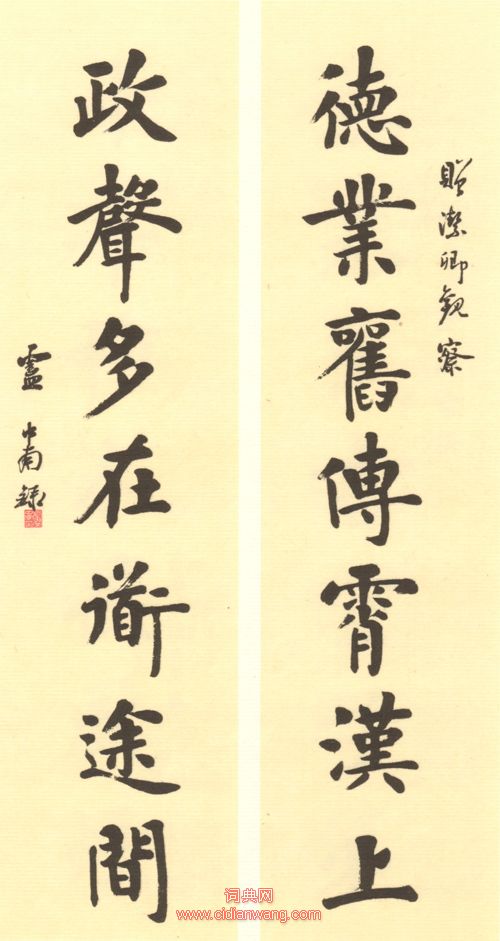 贈潔卿觀察
德業舊傳霄漢上
政聲多在衜途間
盧中南録
词典网
www.cidianwang.com